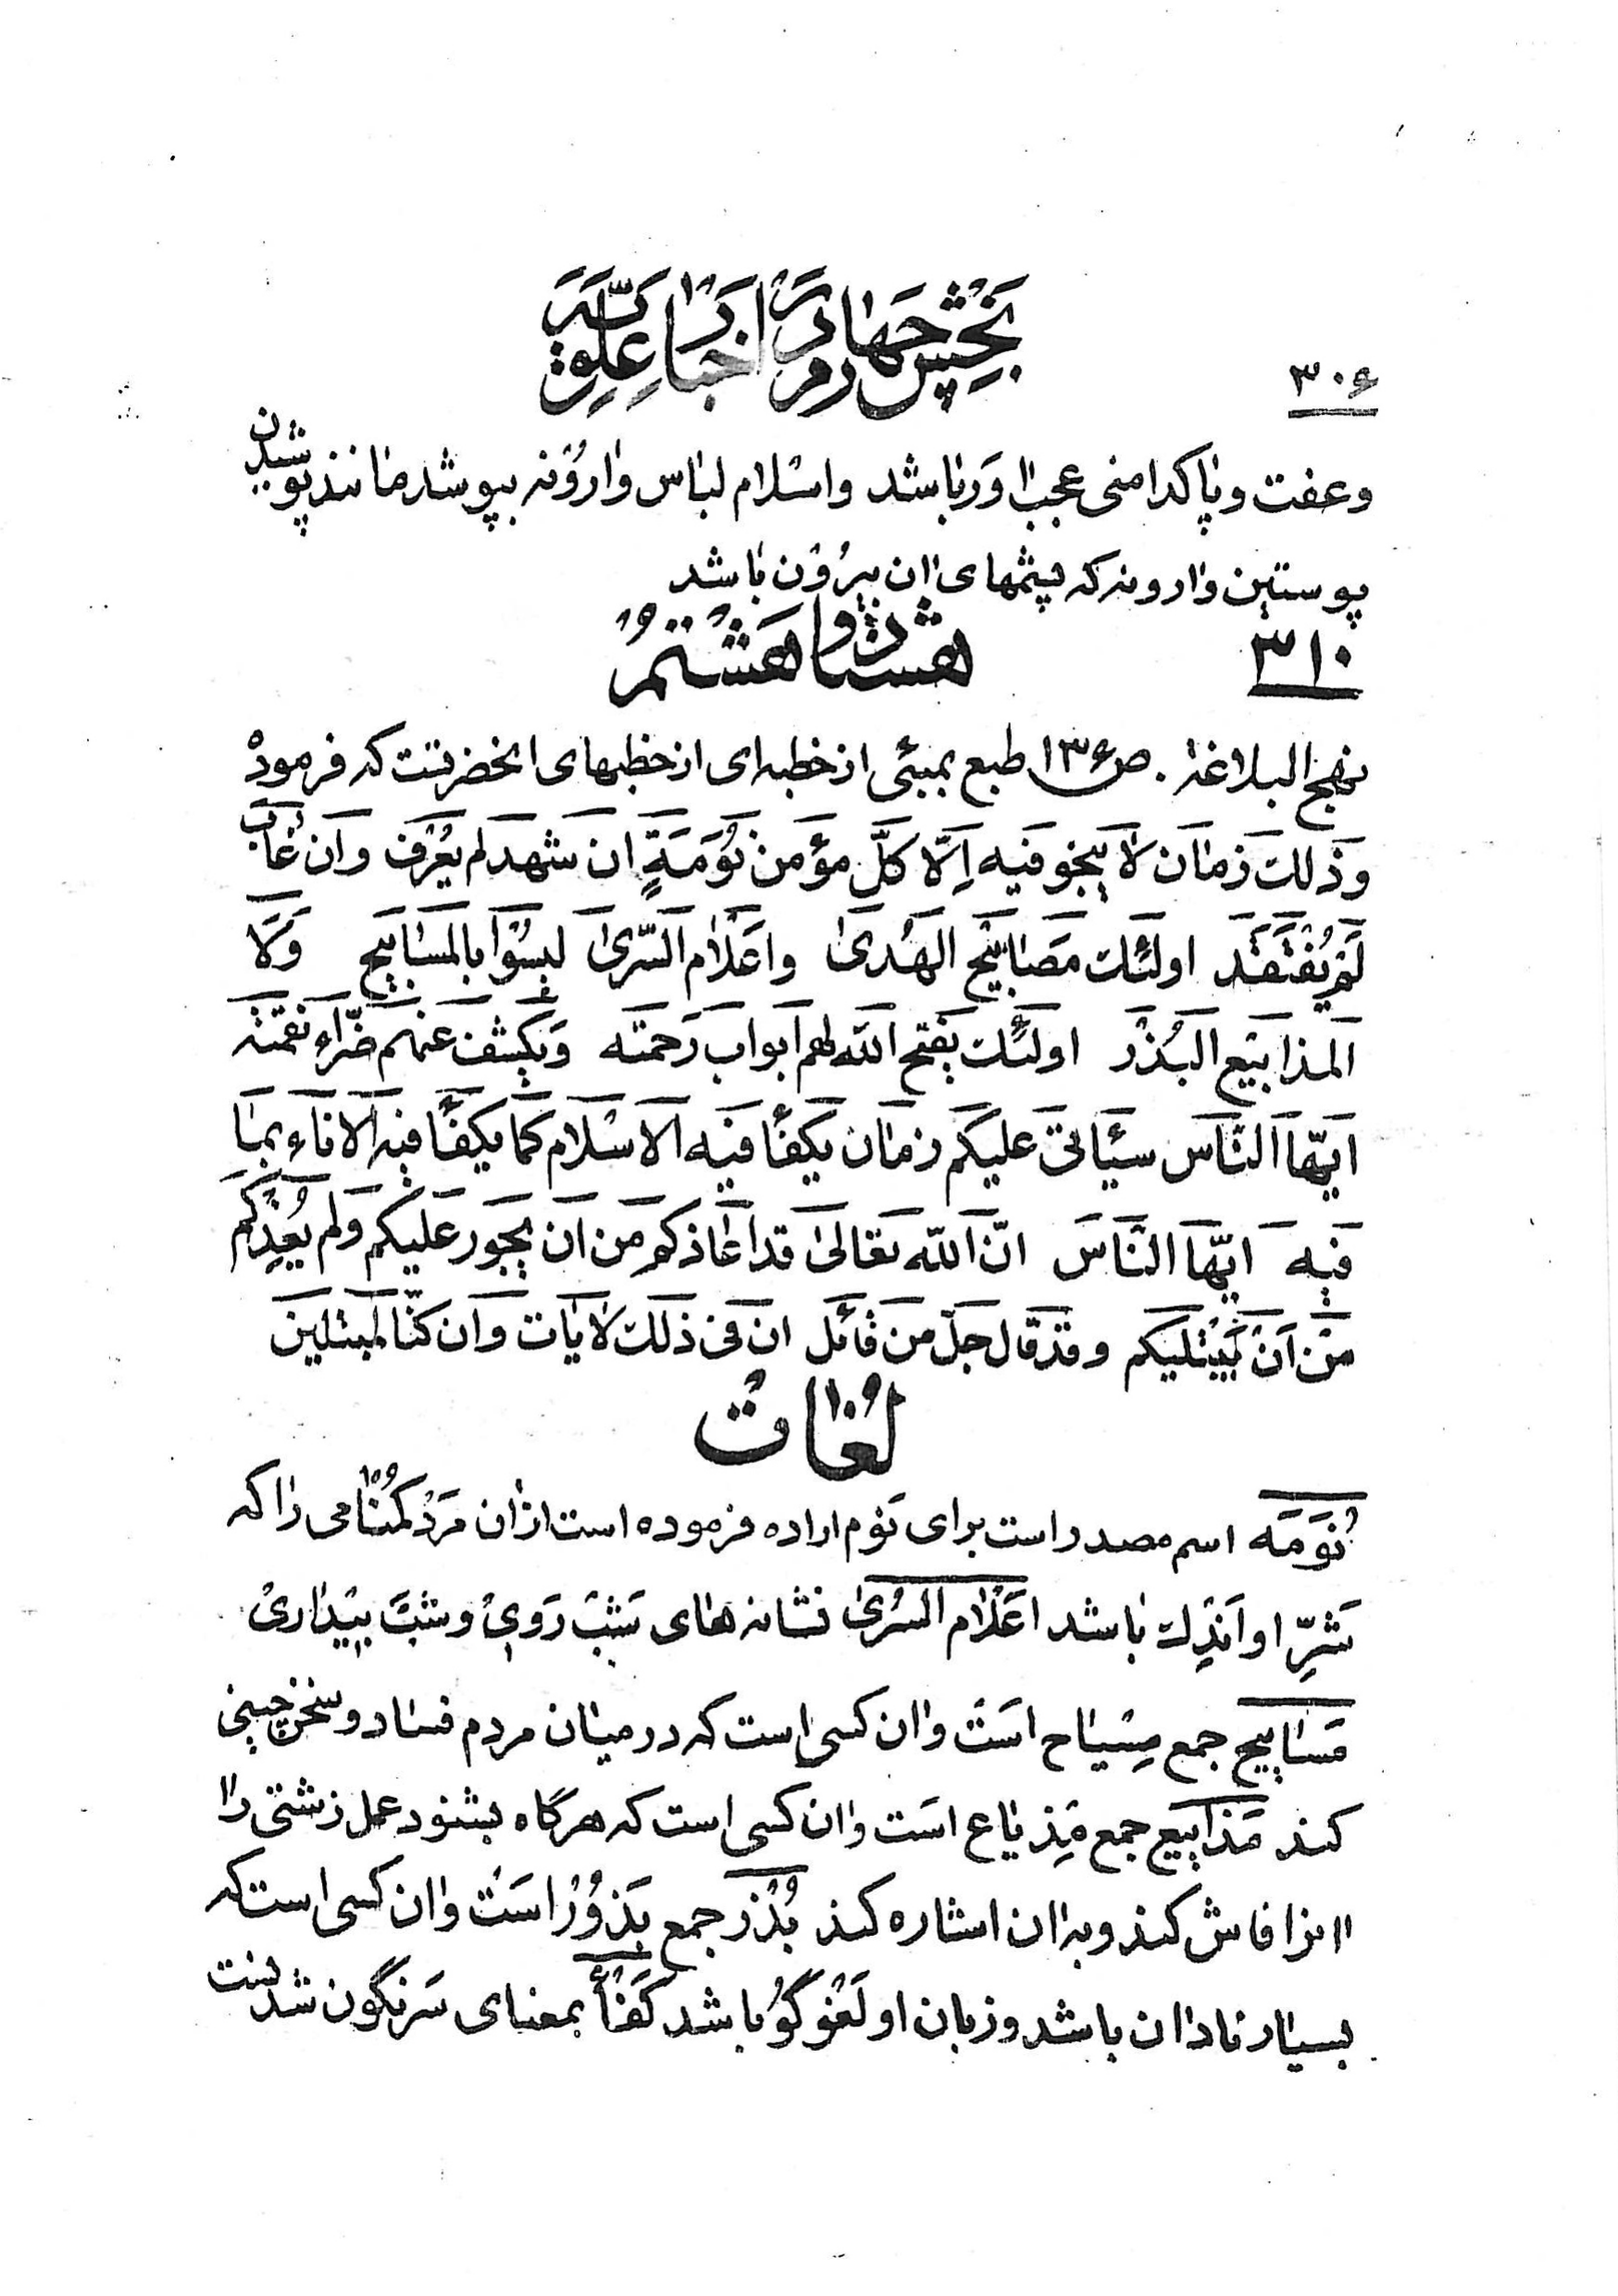 بخش چهارم در اخبار علویّه
۳۰۶
وعفت وپاکدامنی عجب اور باشد واسلام لباس وارونه بپوشد مانند پوشیدن
پوستین وارونه که پشمهای ان بیرون باشد
۳۱۰ هشتاد و هشتم
نهج البلاغه . ص۱۳۶ طبع بمبئی از خطبه ای از خطبهای انحضرتست که فرمود
وَذلك زمان لا ینجو فیه اِلّا کلّ مؤمن نُوَمَةٍ ان شهد لم یُعْرَف وان غاب
لم یُفْتَقَد اولئك مَصابیح الهُدی واَعْلام السّری لیسُوا بالمسابیح وَلا
المذابیع البُذْر اولئك یفتح الله لهم ابواب رَحمته وَیکشف عنهم ضرّاء نقمته
ایّها النّاس سیأتی علیکم زمان یکفأ فیه الاسلام کما یکفأ فیه الاناء بما
فیه ایّها النّاس انّ الله تعالی قد اعاذکم من ان یجور علیکم ولم یُعِذْکم
من اَن یَبْتلیکم وقد قال جلّ من قائل ان فی ذلك لایات وان کنّا لمبتلین
لُغات
نُوَمَه اسم مصدر است برای نوم اراده فرموده است ازان مَرد گُمنامی را که
شَرِّ او اندك باشد اَعْلام السُری نشانه های شب رَوی وشب بیداری
مَسابیح جمع مِسْیاح است وان کسی است که در میان مردم فساد وسخن چینی
کند مَذابیع جمع مِذیاع است وان کسی است که هرگاه بشنود عمل زشتی را
انرا فاش کند وبه ان اشاره کند بُذُر جمع بَذوُر است وان کسی است که
بسیار نادان باشد وزبان او لَغوگوُ باشد کَفْأ بمعنای سَرنگون شدنست